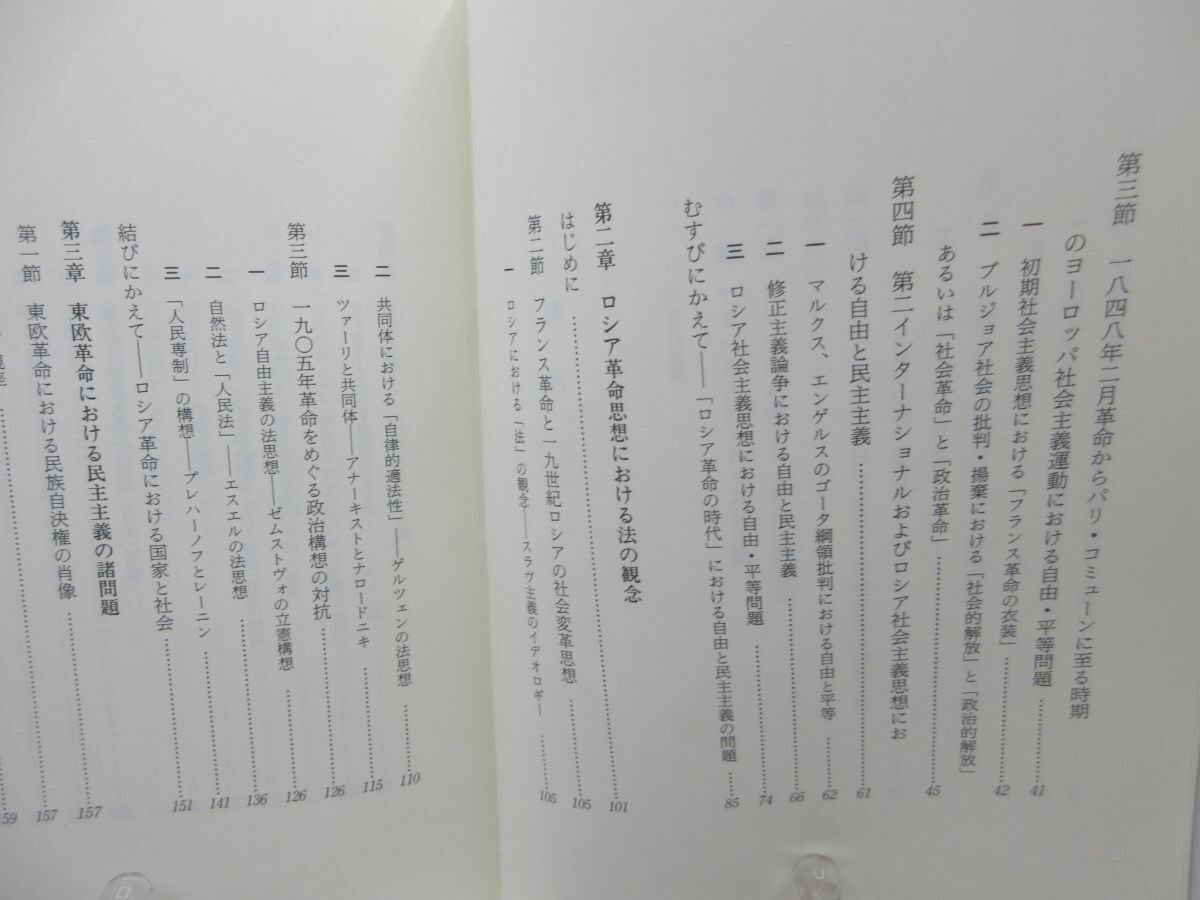 第三節　一八四八年二月革命からパリ・コミューンに至る時期
のヨーロッパ社会主義運動における自由・平等問題 …… 41
一　初期社会主義思想における「フランス革命の衣装」 …… 42
二　ブルジョア社会の批判・揚棄における「社会的解放」と「政治的解放」
あるいは「社会革命」と「政治革命」 …… 45
第四節　第二インターナショナルおよびロシア社会主義思想にお
ける自由と民主主義 …… 61
一　マルクス、エンゲルスのゴータ綱領批判における自由と平等 …… 62
二　修正主義論争における自由と民主主義 …… 66
三　ロシア社会主義思想における自由・平等問題 …… 74
むすびにかえて——「ロシア革命の時代」における自由と民主主義の問題 …… 85
第二章　ロシア革命思想における法の観念 …… 101
はじめに …… 105
第二節　フランス革命と一九世紀ロシアの社会変革思想 …… 105
一　ロシアにおける「法」の観念——スラヴ主義のイデオロギー …… 105
二　共同体における「自律的適法性」——ゲルツェンの法思想 …… 110
三　ツァーリと共同体——アナーキストとナロードニキ …… 115
第三節　一九〇五年革命をめぐる政治構想の対抗 …… 126
一　ロシア自由主義の法思想——ゼムストヴォの立憲構想 …… 126
二　自然法と「人民法」——エスエルの法思想 …… 136
三　「人民専制」の構想——プレハーノフとレーニン …… 141
結びにかえて——ロシア革命における国家と社会 …… 151
第三章　東欧革命における民主主義の諸問題 …… 157
第一節　東欧革命における民族自決権の肖像 …… 157
…… 159